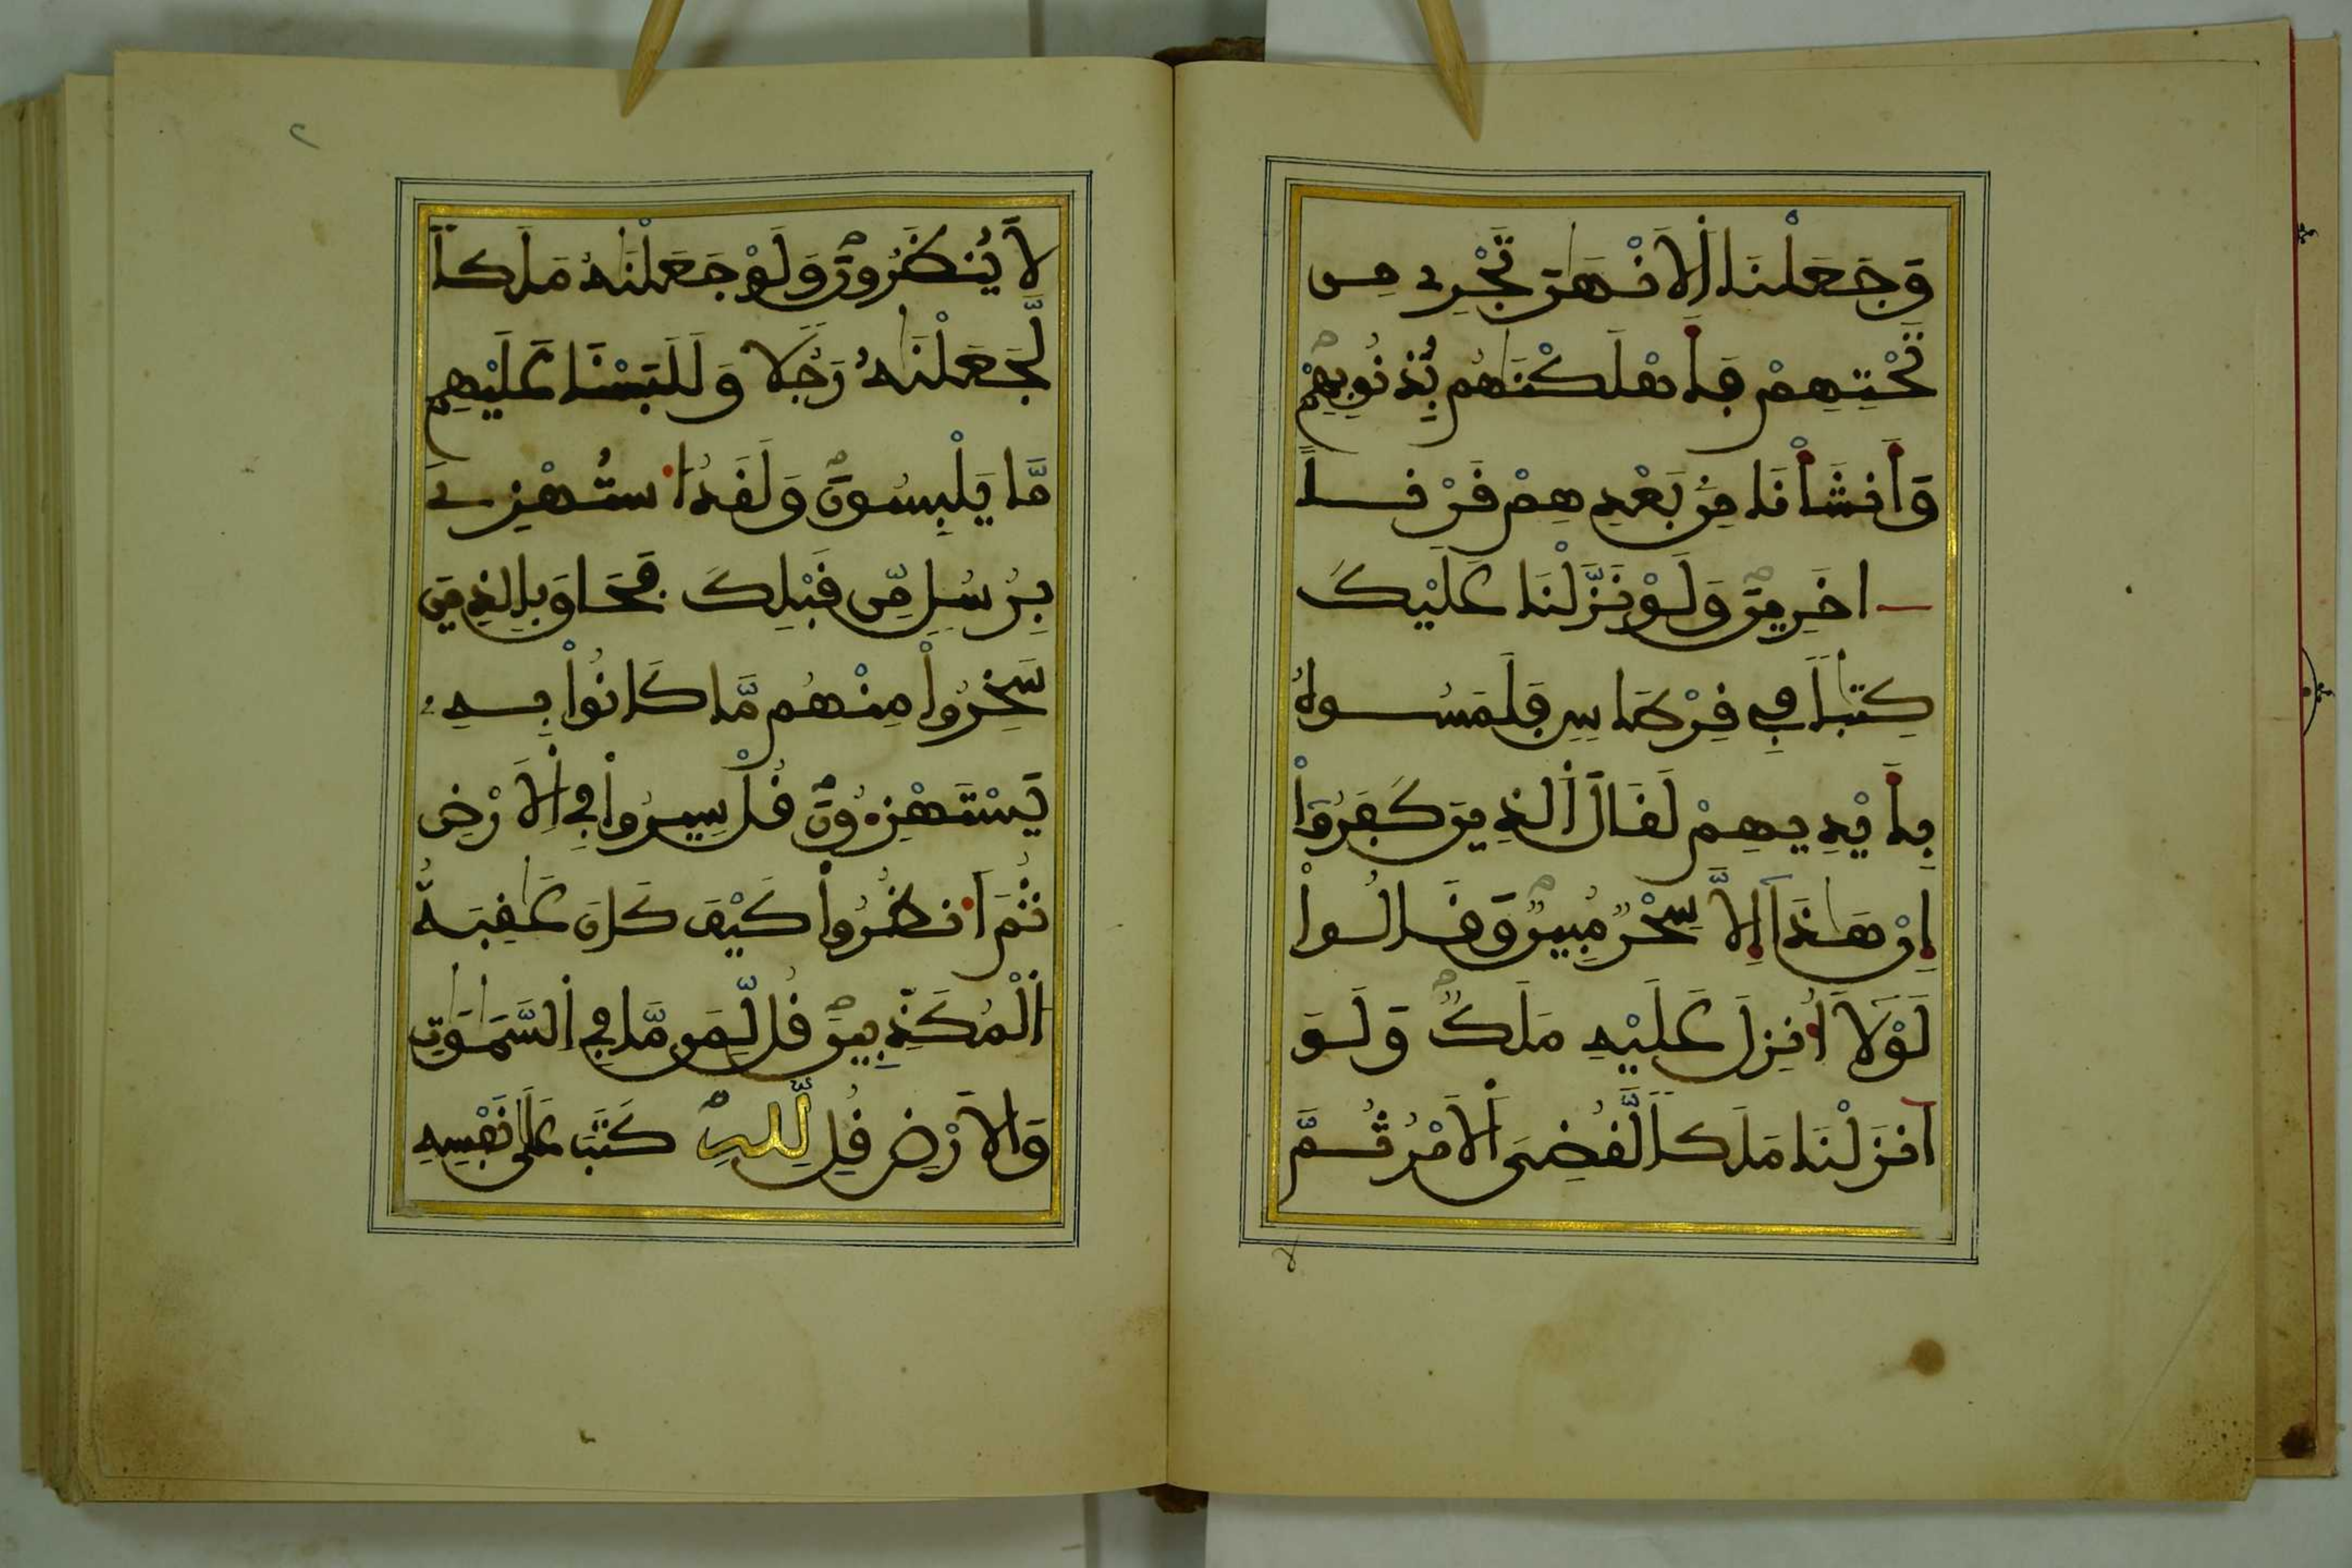 وَجَعَلْنَا اَ۬لَانْهَٰرَ تَجْرِے مِن
تَحْتِهِمْ فَأَهْلَكْنَٰهُم بِذُنُوبِهِمْ
وَأَنشَأْنَا مِنۢ بَعْدِهِمْ قَرْناً
اخَرِينَ وَلَوْ نَزَّلْنَا عَلَيْكَ
كِتَٰباً فِے قِرْطَاسٍ فَلَمَسُوهُ
بِأَيْدِيهِمْ لَقَالَ اَ۬لذِينَ كَفَرُوٓاْ
إِنْ هَٰذَآ إِلَّا سِحْرٌ مُّبِينٌ وَقَالُواْ
لَوْلَآ أُنزِلَ عَلَيْهِ مَلَكٌ وَلَوَ
اَنزَلْنَا مَلَكاً لَّقُضِيَ اَ۬لَامْرُ ثُمَّ
لَا يُنظَرُونَ وَلَوْ جَعَلْنَٰهُ مَلَكاً
لَّجَعَلْنَٰهُ رَجُلًا وَلَلَبَسْنَا عَلَيْهِم
مَّا يَلْبِسُونَ وَلَقَدُ اُ۟سْتُهْزِےَ
بِرُسُلٍ مِّن قَبْلِكَ فَحَاقَ بِالذِينَ
سَخِرُواْ مِنْهُم مَّا كَانُواْ بِهِۦ
يَسْتَهْزِءُونَ قُلْ سِيرُواْ فِے اِ۬لَارْضِ
ثُمَّ اَ۟نظُرُواْ كَيْفَ كَانَ عَٰقِبَةُ
اُ۬لْمُكَذِّبِينَ قُل لِّمَن مَّا فِے اِ۬لسَّمَٰوَٰتِ
وَالَارْضِ قُل لِّلهِ كَتَبَ عَلَىٰ نَفْسِهِ